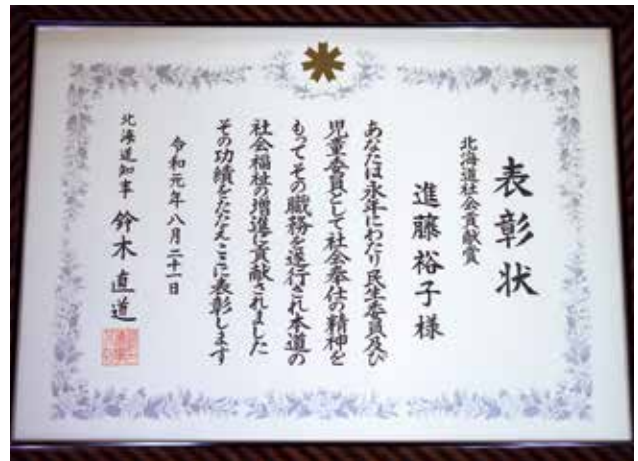 表彰状
北海道社会貢献賞
進藤裕子様
あなたは永年にわたり民生委員及び
児童委員として社会奉仕の精神を
もってその職務を遂行され本道の
社会福祉の増進に貢献されました
その功績をたたえここに表彰します
令和元年八月二十一日
北海道知事 鈴木直道